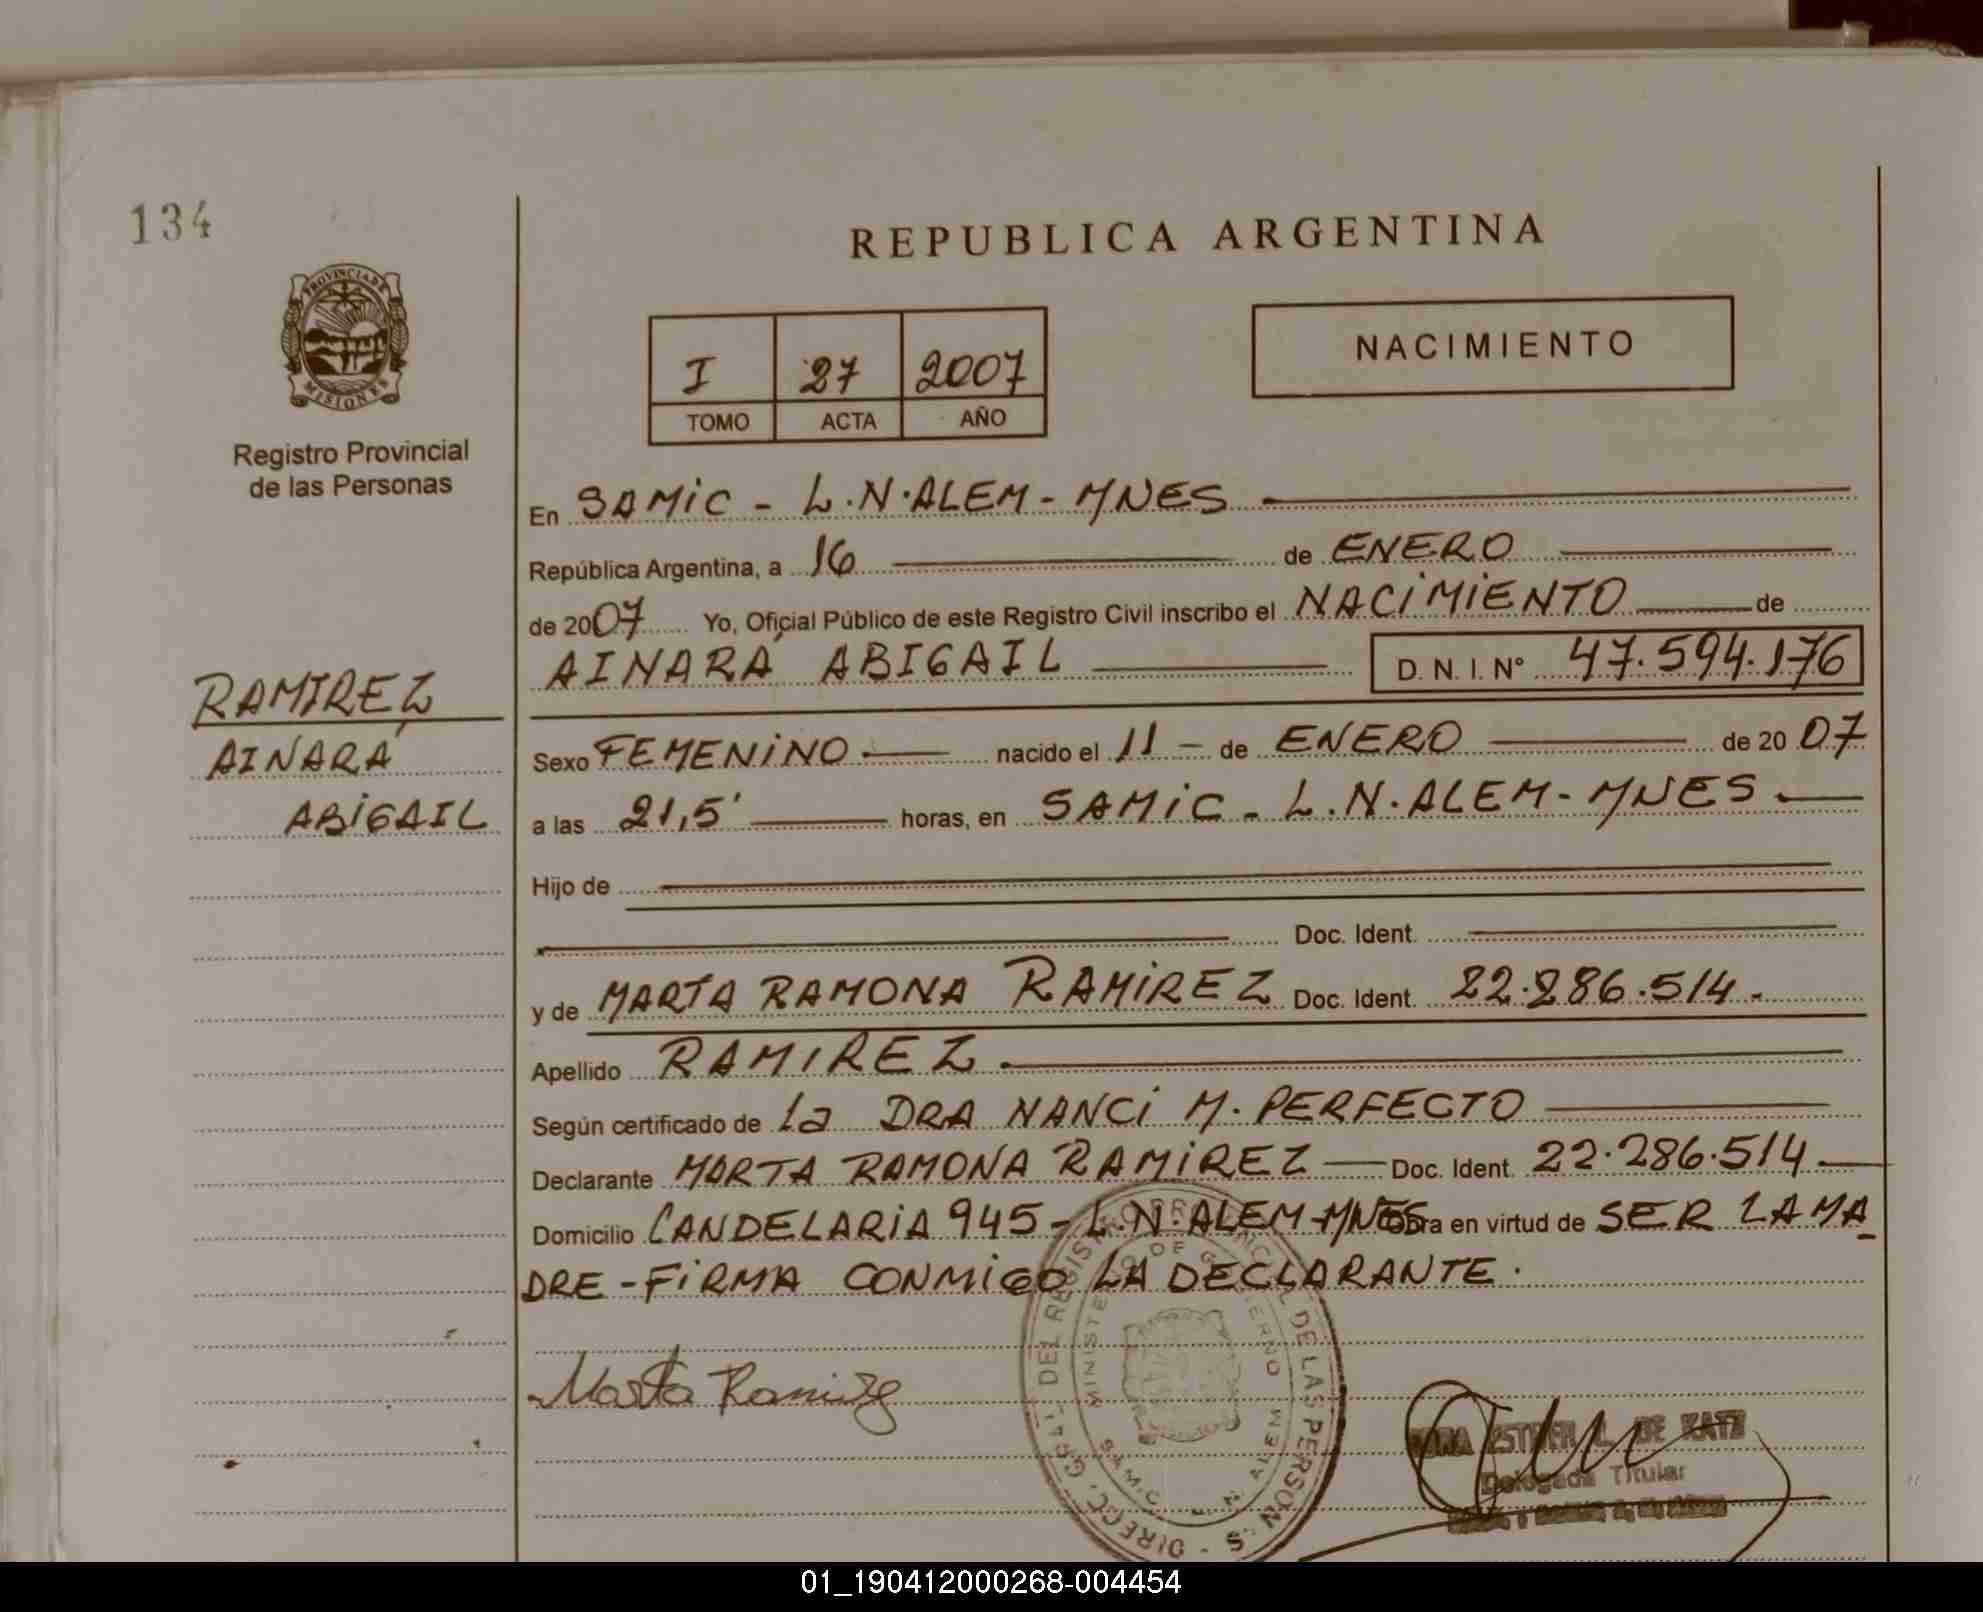 134
REPUBLICA ARGENTINA
PROVINCIA DE
MISIONES
Registro Provincial
de las Personas
I 27 2007
TOMO ACTA AÑO
NACIMIENTO
En SAMIC - L.N.ALEM - MNES
República Argentina, a 16 de ENERO
de 2007 Yo, Oficial Público de este Registro Civil inscribo el NACIMIENTO de
AINARA ABIGAIL D. N. I. N° 47.594.176
RAMIREZ
AINARA
ABIGAIL
Sexo FEMENINO nacido el 11 - de ENERO de 2007
a las 21,5' horas, en SAMIC - L.N.ALEM - MNES
Hijo de
Doc. Ident.
y de MARTA RAMONA RAMIREZ Doc. Ident. 22.286.514.
Apellido RAMIREZ.
Según certificado de La DRA NANCI M. PERFECTO
Declarante MARTA RAMONA RAMIREZ Doc. Ident. 22.286.514.
Domicilio CANDELARIA 945 - L.N.ALEM-MNES obra en virtud de SER LA MA
DRE - FIRMA CONMIGO LA DECLARANTE.
DIREC. GRAL. DEL REGISTRO PROVINCIAL DE LAS PERSONAS
MINISTERIO DE GOBIERNO
S.A.M.I.C. L. N. ALEM
Marta Ramirez
DE KATZ
Delegada Titular
01_190412000268-004454